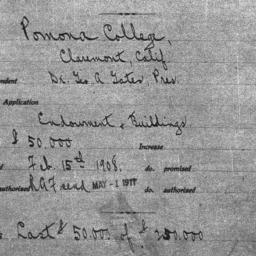 Pomona College,
Claremont, Calif
Dr. Geo. A Gates, Pres.
Application
Endowment & Buildings
$ 50.000
Increase
Feb. 15th 1908. do. promised
MAY - 1 1911 do. authorized
Last $ 50.000 of $ 250.000